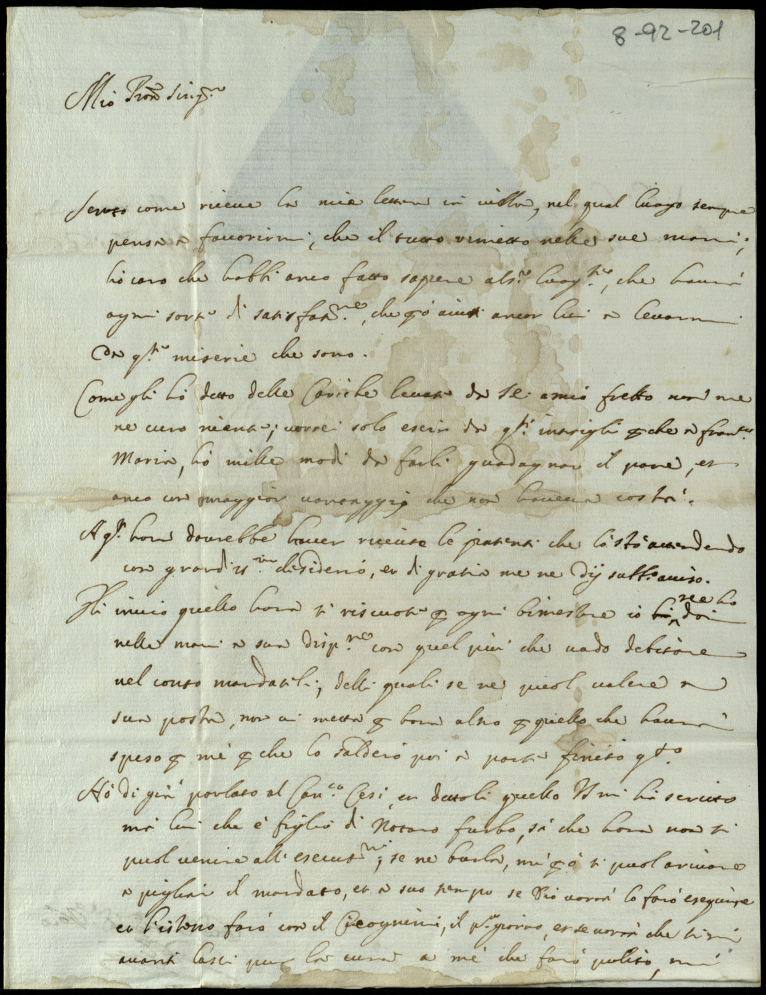 8-92-201
Mio Pron Sing.re
Sento come riceve la mia lettera in villa, nel qual luogo sempre
pensa a favorirmi, che il tutto rimetto nelle sue mani;
hò caro che habbi anco fatto sapere al che haverà
ogni sorte di satisfat.ne, che aiuti ancor lui a levarmi
da q.te miserie che sono.
Come gli hò detto delle Cariche levate da Se a mio frello non me
ne curo niente; vorrei solo escir da q.ti intrighi che a Fran.co
Maria, hò mille modi da farli guadagnar il pane, et
anco con maggior vantaggio che non haveva costì.
A q.t hora dovrebbe haver ricevute le patenti che le stò attendendo
con grandiss.mo desiderio, et di gratia me ne dij subb.o aviso.
Gli invio quello hora si riscuote ogni bimestre io ne ho
nelle mani a sua disp.ne con quel più che vado debitore
nel conto mandatoli, delli quali se ne puol valere a
sua posta, non vi metta hora altro quello che haverà
speso mè che lo salderò poi a parte finito q.to
Hò di già parlato al Can.co Cesi, et dettoli quello mi hà scritto
mà lui che è figlio di Notaro furbo, sà che hora non si
puol venire all'esecut.ne, se ne burla, mà si puol arivare
a pigliar il mandato, et a suo tempo se Dio vorrà lo farò eseguire
et l'istesso farò con il Cicognini, il p.o giorno, et se vorrà che tiri
avanti lasci pur la cura a mè che farò pulito, mà